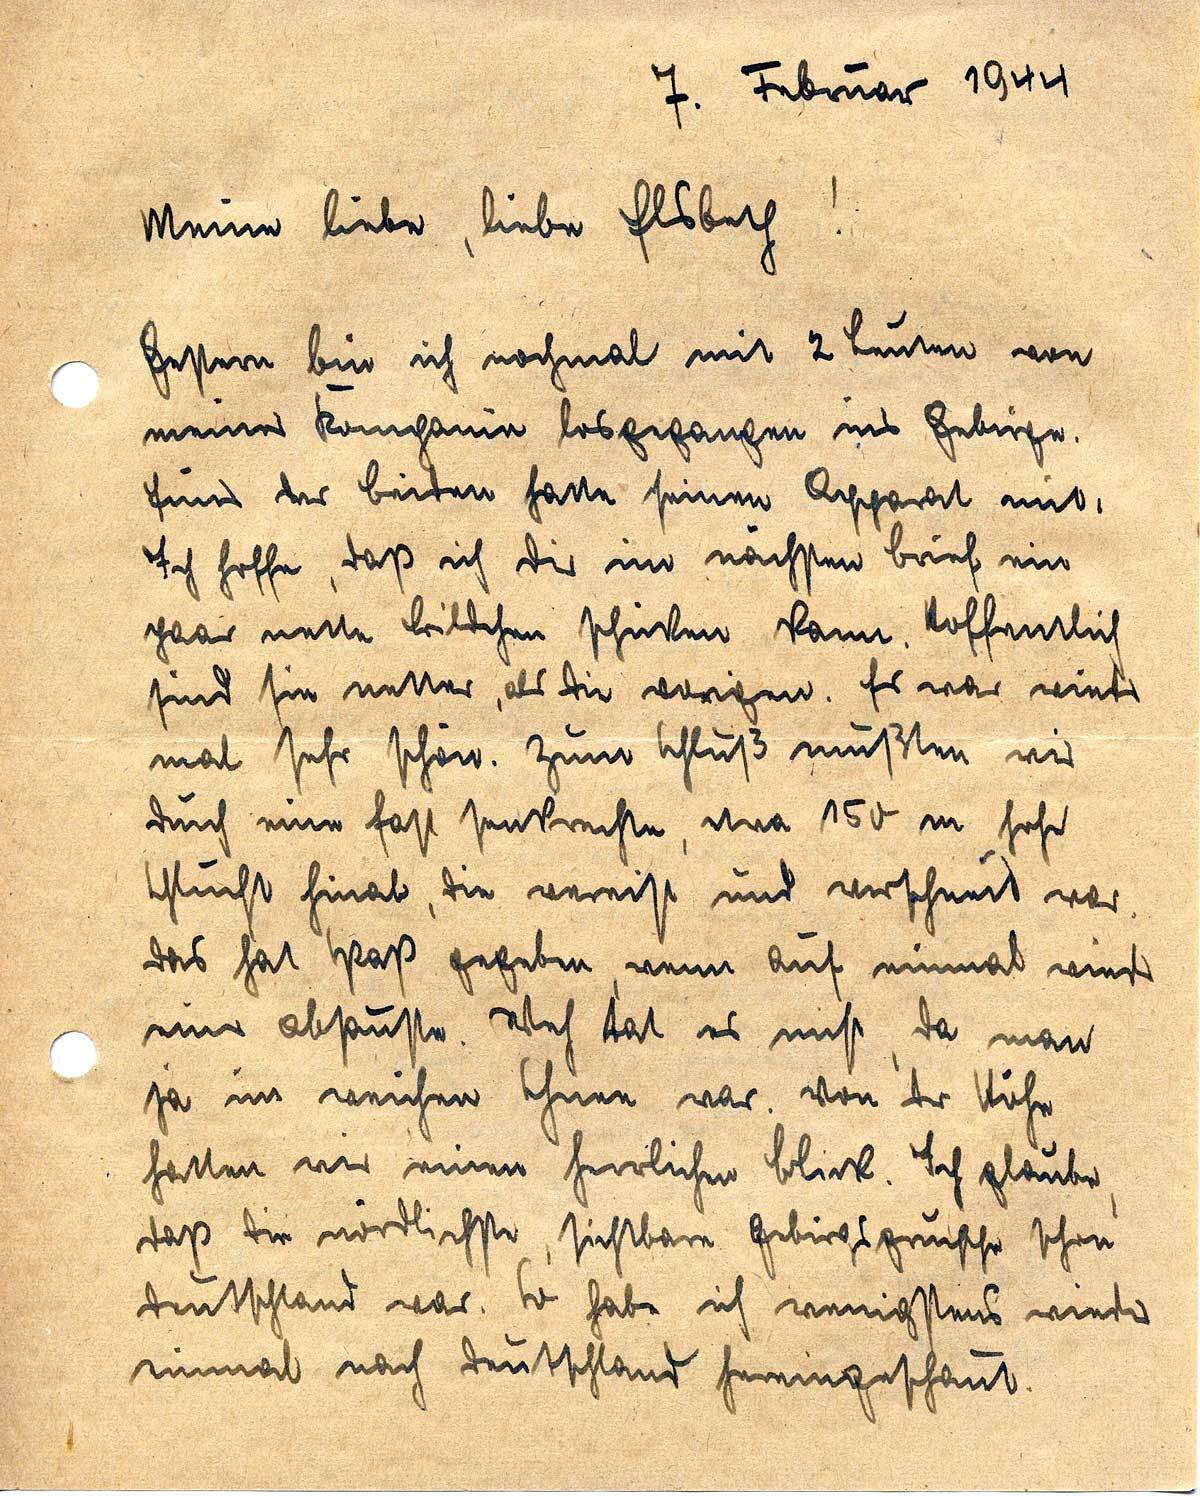 7. Februar 1944
Meine liebe, liebe Elsbeth!
Gestern bin ich nochmal mit 2 Leuten von
meiner Kompanie losgegangen ins Gebirge.
Einer der beiden hatte seinen Apparat mit.
Ich hoffe, daß ich Dir im nächsten Brief ein
paar nette Bildchen schicken kann. Hoffentlich
sind sie netter, als die vorigen. Es war wieder
mal sehr schön. Zum Schluß mußten wir
durch eine fast senkrechte, etwa 150 m hohe
Schlucht hinab, die vereist und verschneit war.
Das hat Spaß gegeben, wenn auf einmal wieder
einer absauste. Weh tat es nicht, da man
ja im weichen Schnee war. Von der Höhe
hatten wir einen herrlichen Blick. Ich glaube,
daß die nördlichste, sichtbare Gebirgsgruppe schon
Deutschland war. So habe ich wenigstens wieder
einmal nach Deutschland hereingeschaut.